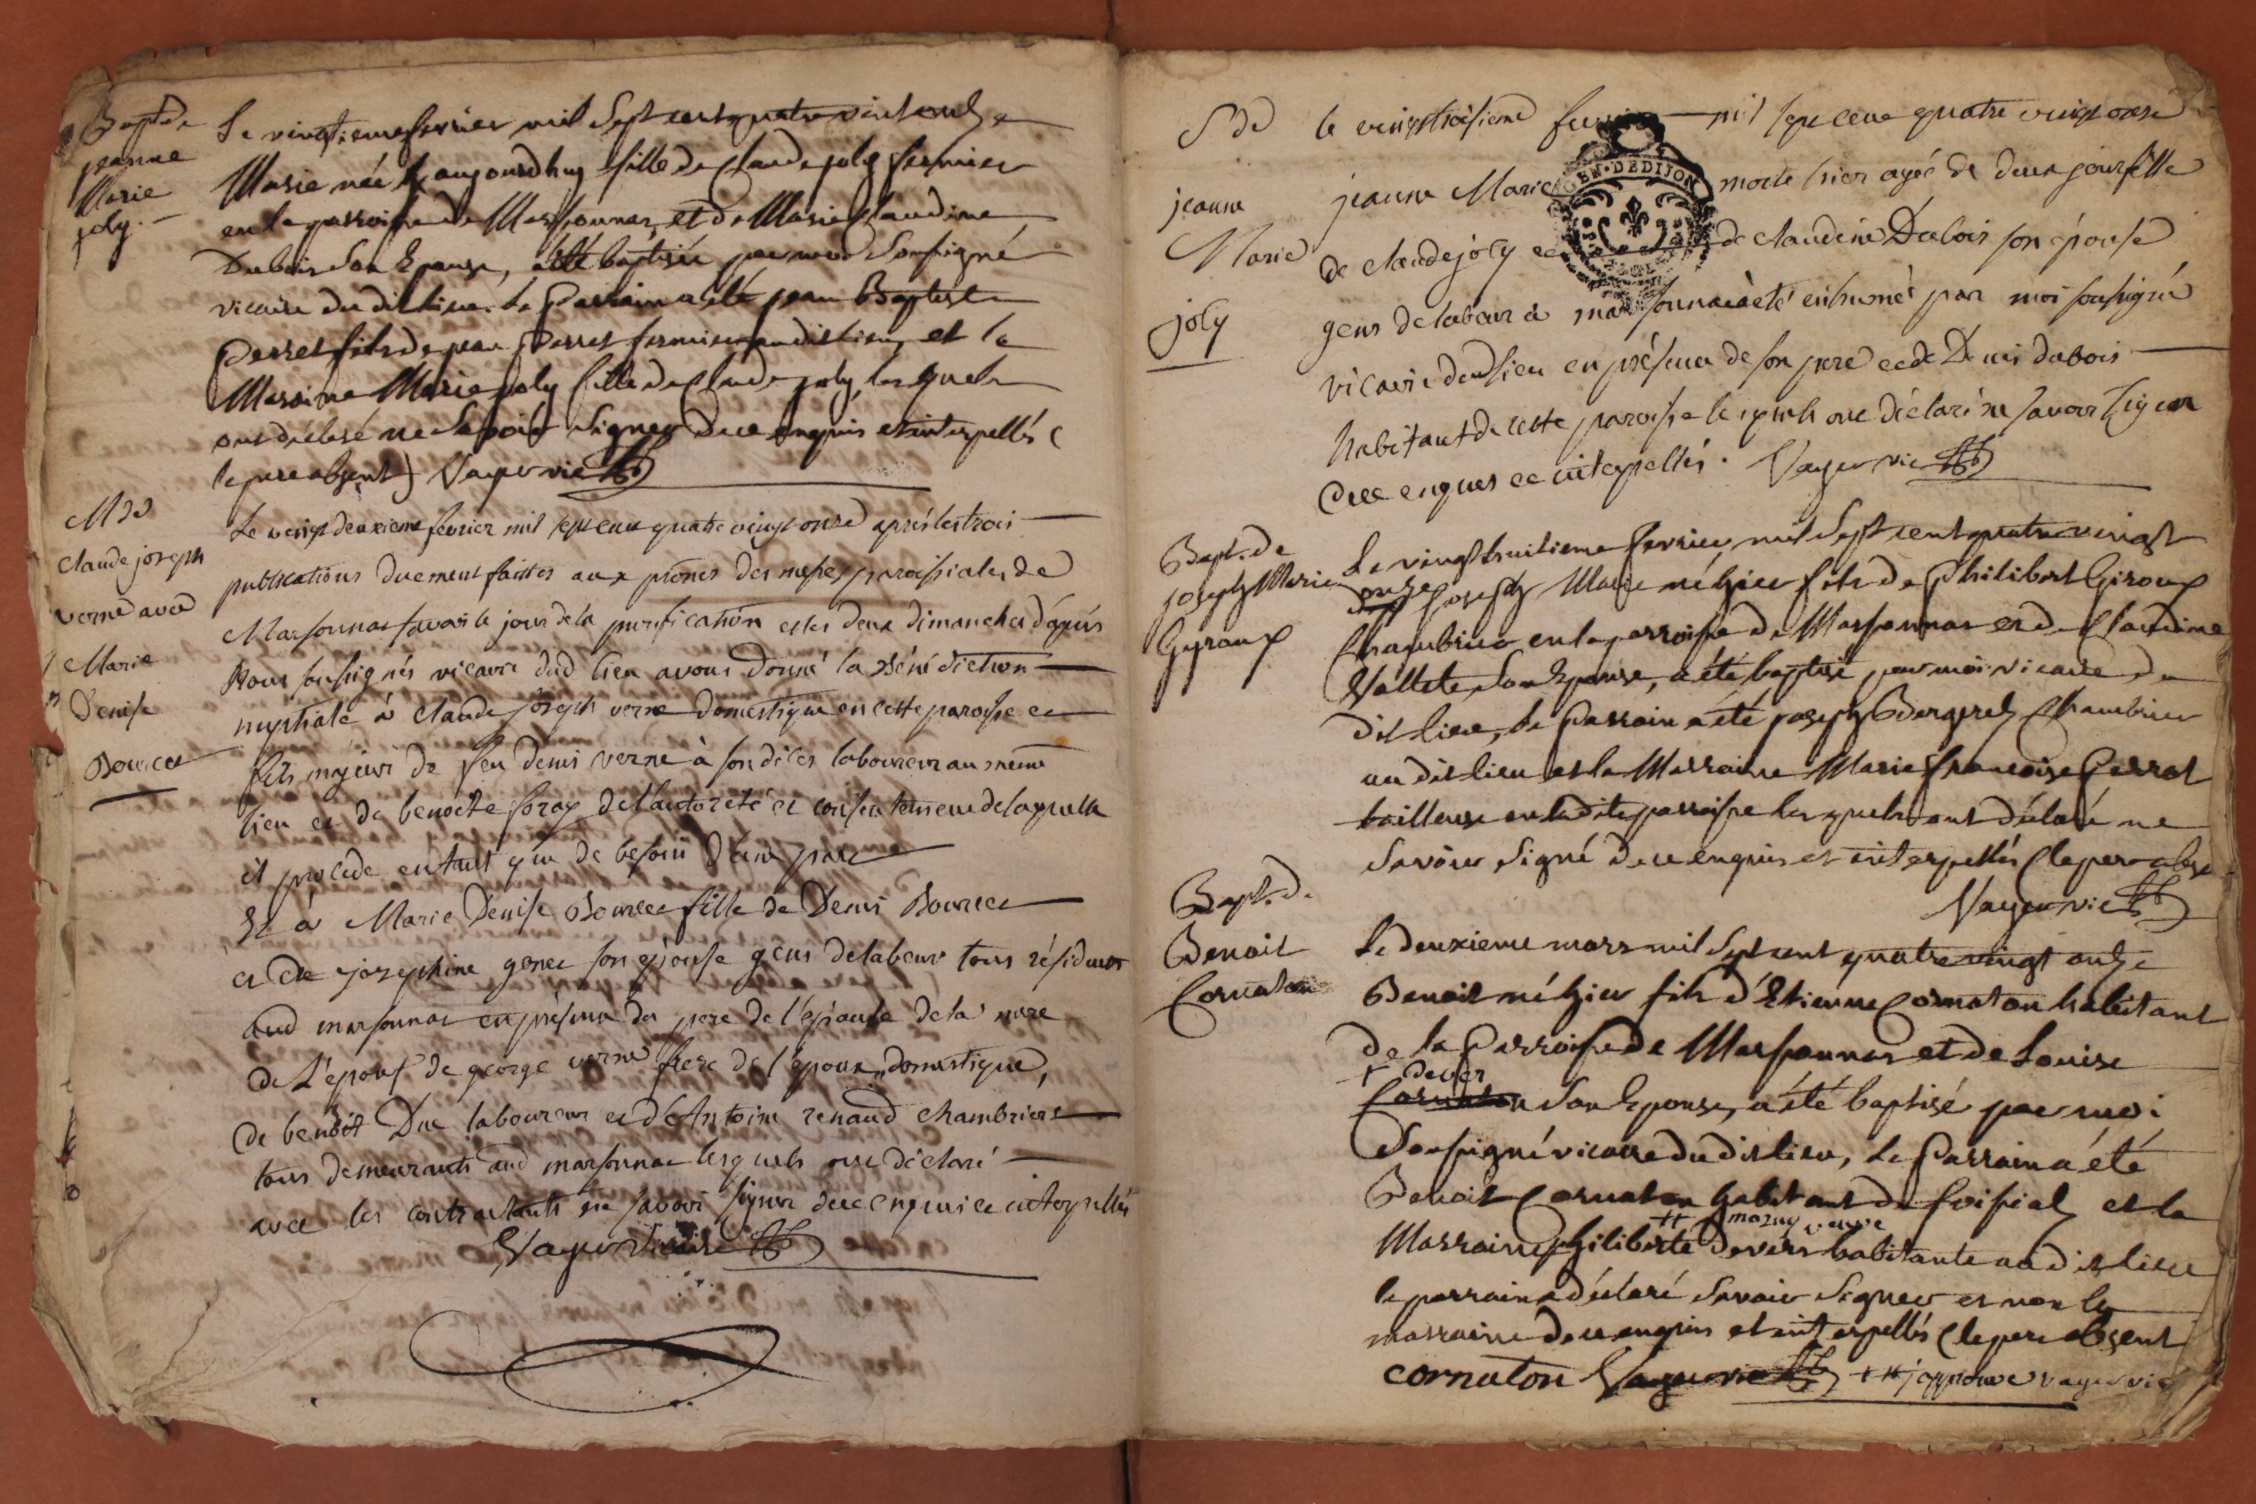 Bapt. de
jeanne
Marie
joly.
Le vingtieme fevrier mil Sept cent quatre vint onze
Marie née aujourdhuy fille de Claude joly fermier
en la parroisse de Marsonnas, et de Marie Claudine
Dubois Son Epouse, a été baptisée par nous Soussigné
vicaire du dit lieu. Le Parrain a été jean Baptiste
Perret fils de jean Perret fermier au dit lieu, et la
Marraine Marie joly fille de Claude joly, les quels
ont déclaré ne Savoir Signer de ce enquis et interpellés (
le pere absent) Vayer vic
M de
Claude joseph
verne avec
Marie
Denise
Bourcet
Le vingt deuxieme fevrier mil sept cent quatre vingt onze après les trois
publications duement faittes aux prônes des messes paroissiales de
Marsonnas savoir le jour de la purification et les deux dimanches d'après
Nous soussignés vicaire dud lieu avons donné la Bénédiction
nuptiale à Claude joseph verne domestique en cette paroisse et
fils majeur de feu denis verne à son décès laboureur au meme
lieu et de benoite foray de l'autorité et consentement de laquelle
il procede en tant que de besoin d'une part
Et à Marie Denise Bourcet fille de Denis Bourcet
et de josephine genet son épouse gens de labeur tous résidants
aud marsonnas en présence du pere de l'épouse de la mere
de L'epouse de george verne frere de l'époux domestique,
de benoît Duc laboureur et d'Antoine renaud chambriers
tous demeurants aud marsonnas lesquels ont déclaré
avec les contractants ne savoir signer de ce enquis et interpellés
Vayer Vicaire
S de
jeanne
Marie
joly
le vingt troisieme fevrier mil sept cent quatre vingt onze
jeanne Marie morte hier agée de deux jour fille
de claude joly et de claudine Dubois son épouse
gens de labeur à marsonnas a été inhumée par moi soussigné
vicaire dud lieu en présence de son pere et de Denis dubois
habitant de cette paroisse lesquels ont déclaré ne savoir signer
de ce enquis et interpellés. Vayer vic
Bapt. de
joseph Marie
Gyroux
Le vingt huitieme fevrier mil Sept cent quatre vingt
onze joseph Marie né hier fils de Philibert Giroux
Chambrier en la parroisse de Marsonnas et de Claudine
Vállete Son Epouse, a été baptisé par moi vicaire du
dit lieu, le Parrain a été joseph Bergeret Chambrier
au dit lieu et la Marraine Marie françoise Perret
tailleuse en la dite parroisse les quels ont déclaré ne
Savoir Signé de ce enquis et interpellés (le pere absen
Vayer vic
Bapt. de
Benoit
Cornaton
Le deuxieme mars mil Sept cent quatre vingt onze
Benoit né hier fils d'Etienne Cornaton habitant
de la Parroisse de Marsonnas et de Louise
+ dever
Cornaton Son Epouse, a été baptisé par moi
Soussigné vicaire du dit lieu, Le Parrain a été
Benoit Cornaton habitant de foissiat et la
++ mazuy veuve
Marraine philiberte Devers habitante au dit lieu
le parrain a déclaré Savoir Signer et non la
marraine de ce enquis et interpellés (le pere absent
cornaton Vayer vic + ++ j'approuve vayer vic
GEN · DE DIJON